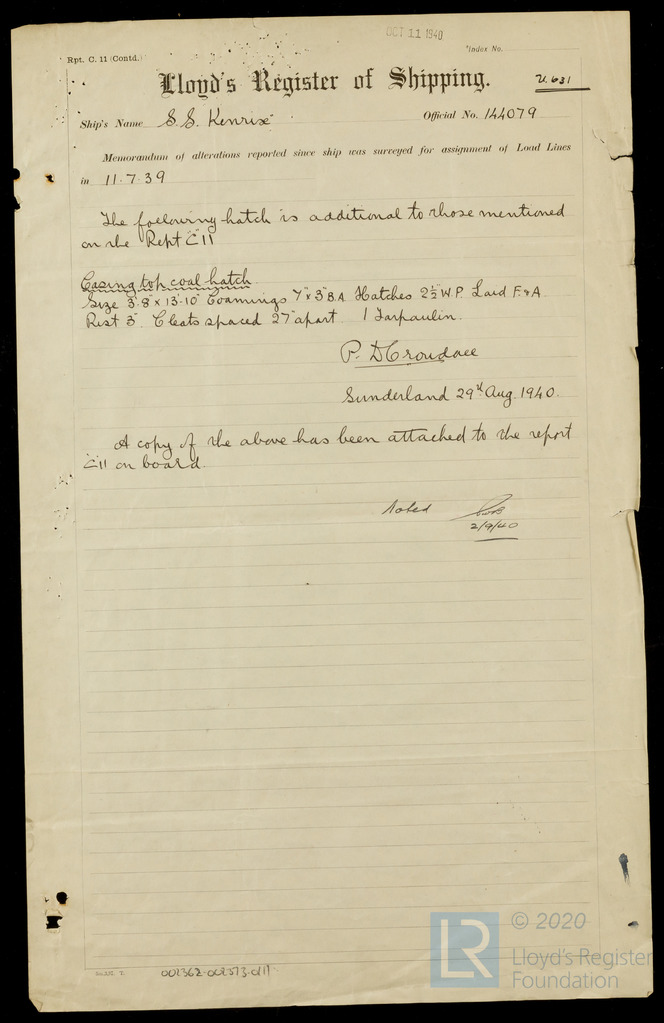 OCT 11 1940
Rpt. C. 11 (Contd.)
Index No.
Lloyd's Register of Shipping.
Ship's Name S.S. "Kenrix" Official No. 144079
Memorandum of alterations reported since ship was surveyed for assignment of Load Lines
in 11.7.39
The following hatch is additional to those mentioned
on the Rept C11
Casing top coal hatch.
Size 3'-8" x 13'-10" Coamings 7" x 3" B.A Hatches 2½" W.P. Laid F.&A
Rest 3" Cleats spaced 27" apart 1 Tarpaulin.
P. D Croudace
Sunderland 29th Aug. 1940.
A copy of the above has been attached to the report
C11 on board.
Noted
2/9/40
002362-002373-0111
© 2020
LR
Lloyd's Register
Foundation